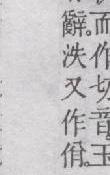 而作切音玉
辭。泆又作佾。